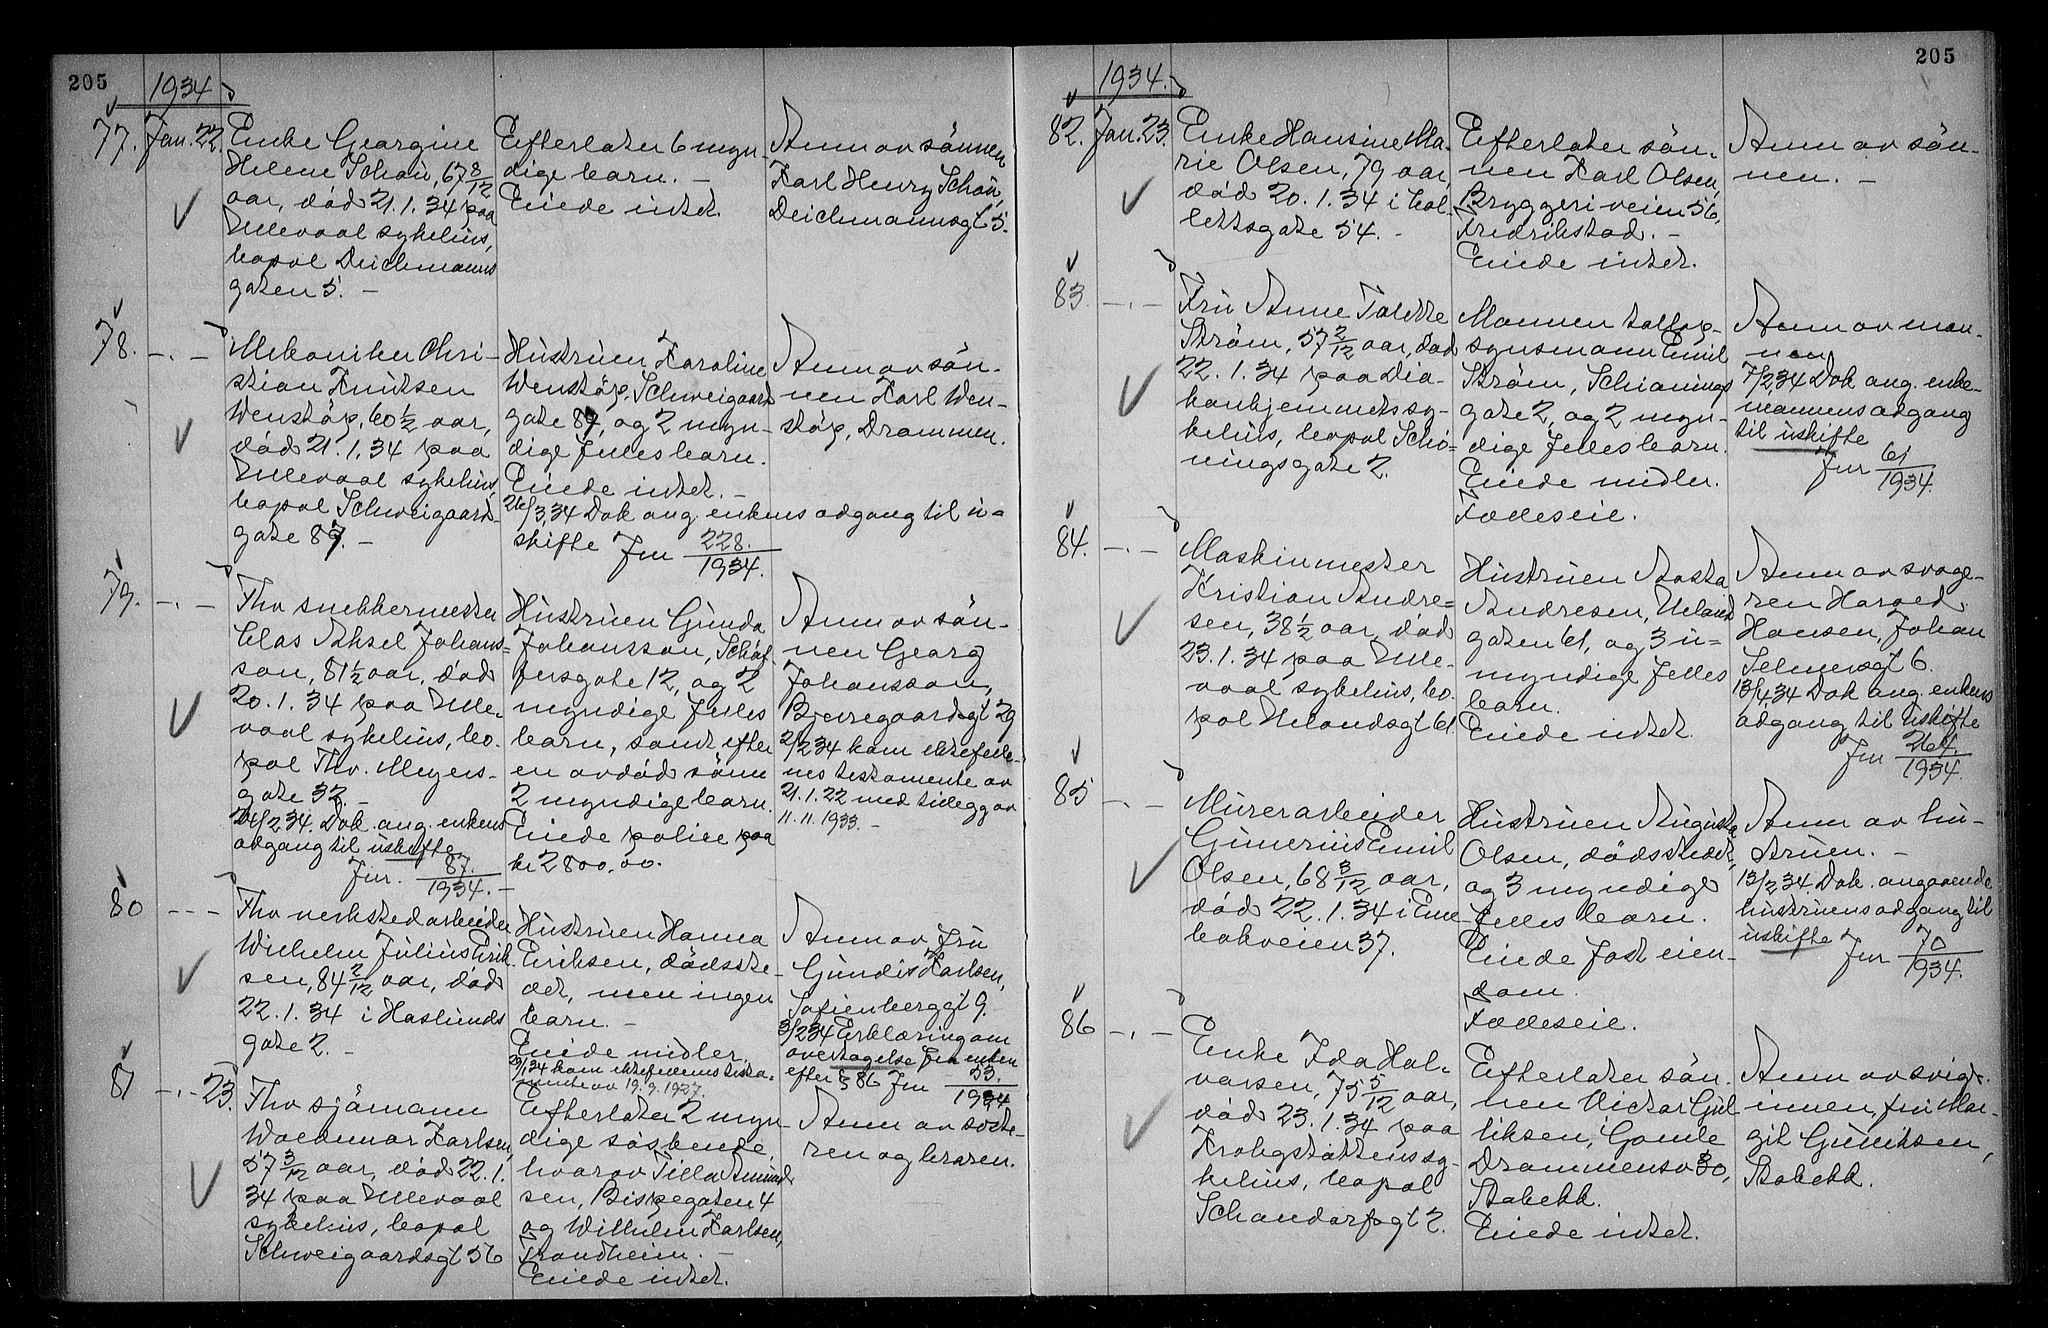 205
1934
77. Jan. 22.
Enke Georgine
Helene Schau, 67 8/12
aar, död 21.1.34 paa
Ullevaal sykehus,
bopæl Deichmanns
gaten 5. –
Efterlater 6 myn-
dige barn. –
Eiede intet.
Anm av sönnen
Karl Henry Schau,
Deichmannsgt 5.
78. –.–
Mekaniker Chri-
stian Knutsen
Wenstöp, 60 1/2 aar,
död 21.1.34 paa
Ullevaal sykehus,
bopæl Schweigaards-
gate 87. –
Hustruen Karoline
Wenstöp, Schweigaards
gate 87, og 2 myn-
dige felles barn.
Eiede intet. –
26/3 34 Dok ang. enkens adgang til u=
skifte Jnr 228./1934.
Anm av sön-
nen Karl Wen-
stöp, Drammen.
79. –.–
Fhv snekkermester
Clas Aksel Johans=
son, 81 1/2 aar, död
20.1.34 paa Ulle-
vaal sykehus, bo-
pæl Thv. Meyers-
gate 32. –
24/2 34. Dok. ang. enkens
adgang til uskifte
Jnr. 87./1934. –
Hustruen Gunda
Johansson, Schaf-
fersgate 12, og 2
myndige felles
barn, samt efter
en avdöd sönn
2 myndige barn.
Eiede police paa
kr 2800,00.
Anm av sön-
nen Georg
Johansson,
Bjerregaardsgt 29
2/2 34 kom ektefelle-
nes testamente av
21.1.22 med tillegg av
11.11.1933. –
80 – – –
Fhv verkstedarbeider
Wilhelm Julius Erik-
sen, 84 2/12 aar, död
22.1.34 i Haslunds
gate 2. –
Hustruen Hanna
Eriksen, dödsste-
det, men ingen
barn. –
Eiede midler.
29/1 34 kom ektefellenes testa-
mente av 19.9.1927.
Anm av fru
Gundis Karlsen,
Sofienberggt 9.
3/2 34 Erklæring om
overtagelse fra enken
efter § 86 Jnr 53./1934
81 –.– 23.
Fhv sjömann
Woldemar Karlsen,
57 3/12 aar, död 22.1.
34 paa Ullevaal
sykehus, bopæl
Schweigaardsgt 56
Efterlater 2 myn-
dige söskende,
hvorav Tilla Amund
sen, Bispegaten 4
og Wilhelm Karlsen,
Trondheim. –
Eiede intet.
Anm av söste-
ren og broren.
205
1934.
82. Jan. 23.
Enke Hansine Ma-
rie Olsen, 79 aar,
död 20.1.34 i Col-
lettsgate 54. –
Efterlater sön-
nen Karl Olsen,
Bryggeriveien 56,
Fredrikstad. –
Eiede intet.
Anm av sön-
nen. –
83. –.–
Fru Anne Talette
Ström, 57 2/12 aar, död
22.1.34 paa Dia-
konhjemmets sy-
kehus, bopæl Schö-
ningsgate 2.
Mannen tollop-
synsmann Emil
Ström, Schönings
gate 2, og 2 myn-
dige felles barn.
Eiede midler.
Fælleseie.
Anm av man-
nen
7/2 34 Dok ang. enke-
mannens adgang
til uskifte
Jnr 61/1934.
84. –.–
Maskinmester
Kristian Andre=
sen, 38 1/2 aar, död
23.1.34 paa Ulle-
vaal sykehus, bo-
pæl Uelandsgt 61
Hustruen Aasta
Andresen, Uelands
gaten 61, og 3 u=
myndige felles
barn.
Eiede intet.
Anm av svoge-
ren Harald
Hansen, Johan
Selmersgt 6.
13/4 34 Dok ang. enkens
adgang til uskifte
Jnr 264./1934.
85 –.–
Murerarbeider
Gunerius Emil
Olsen, 68 3/12 aar,
död 22.1.34 i Eke
bokveien 37.
Hustruen Auguste
Olsen, dödsstedet,
og 3 myndige
felles barn.
Eiede fast eien-
dom.
Fælleseie.
Anm av hu-
struen. –
13/2 34 Dok. angaaende
hustruens adgang til
uskifte Jnr 70/1934.
86 –.–
Enke Ida Hal-
varsen, 75 5/12 aar,
död 23.1.34 paa
Krohgstöttens sy-
kehus, bopæl
Schandorfsgt 2.
Efterlater sön-
nen Victor Gul
liksen, Gamle
Drammensv 30,
Stabekk.
Eiede intet.
Anm av svige-
innen, fru Mar-
git Gulliksen,
Stabekk.